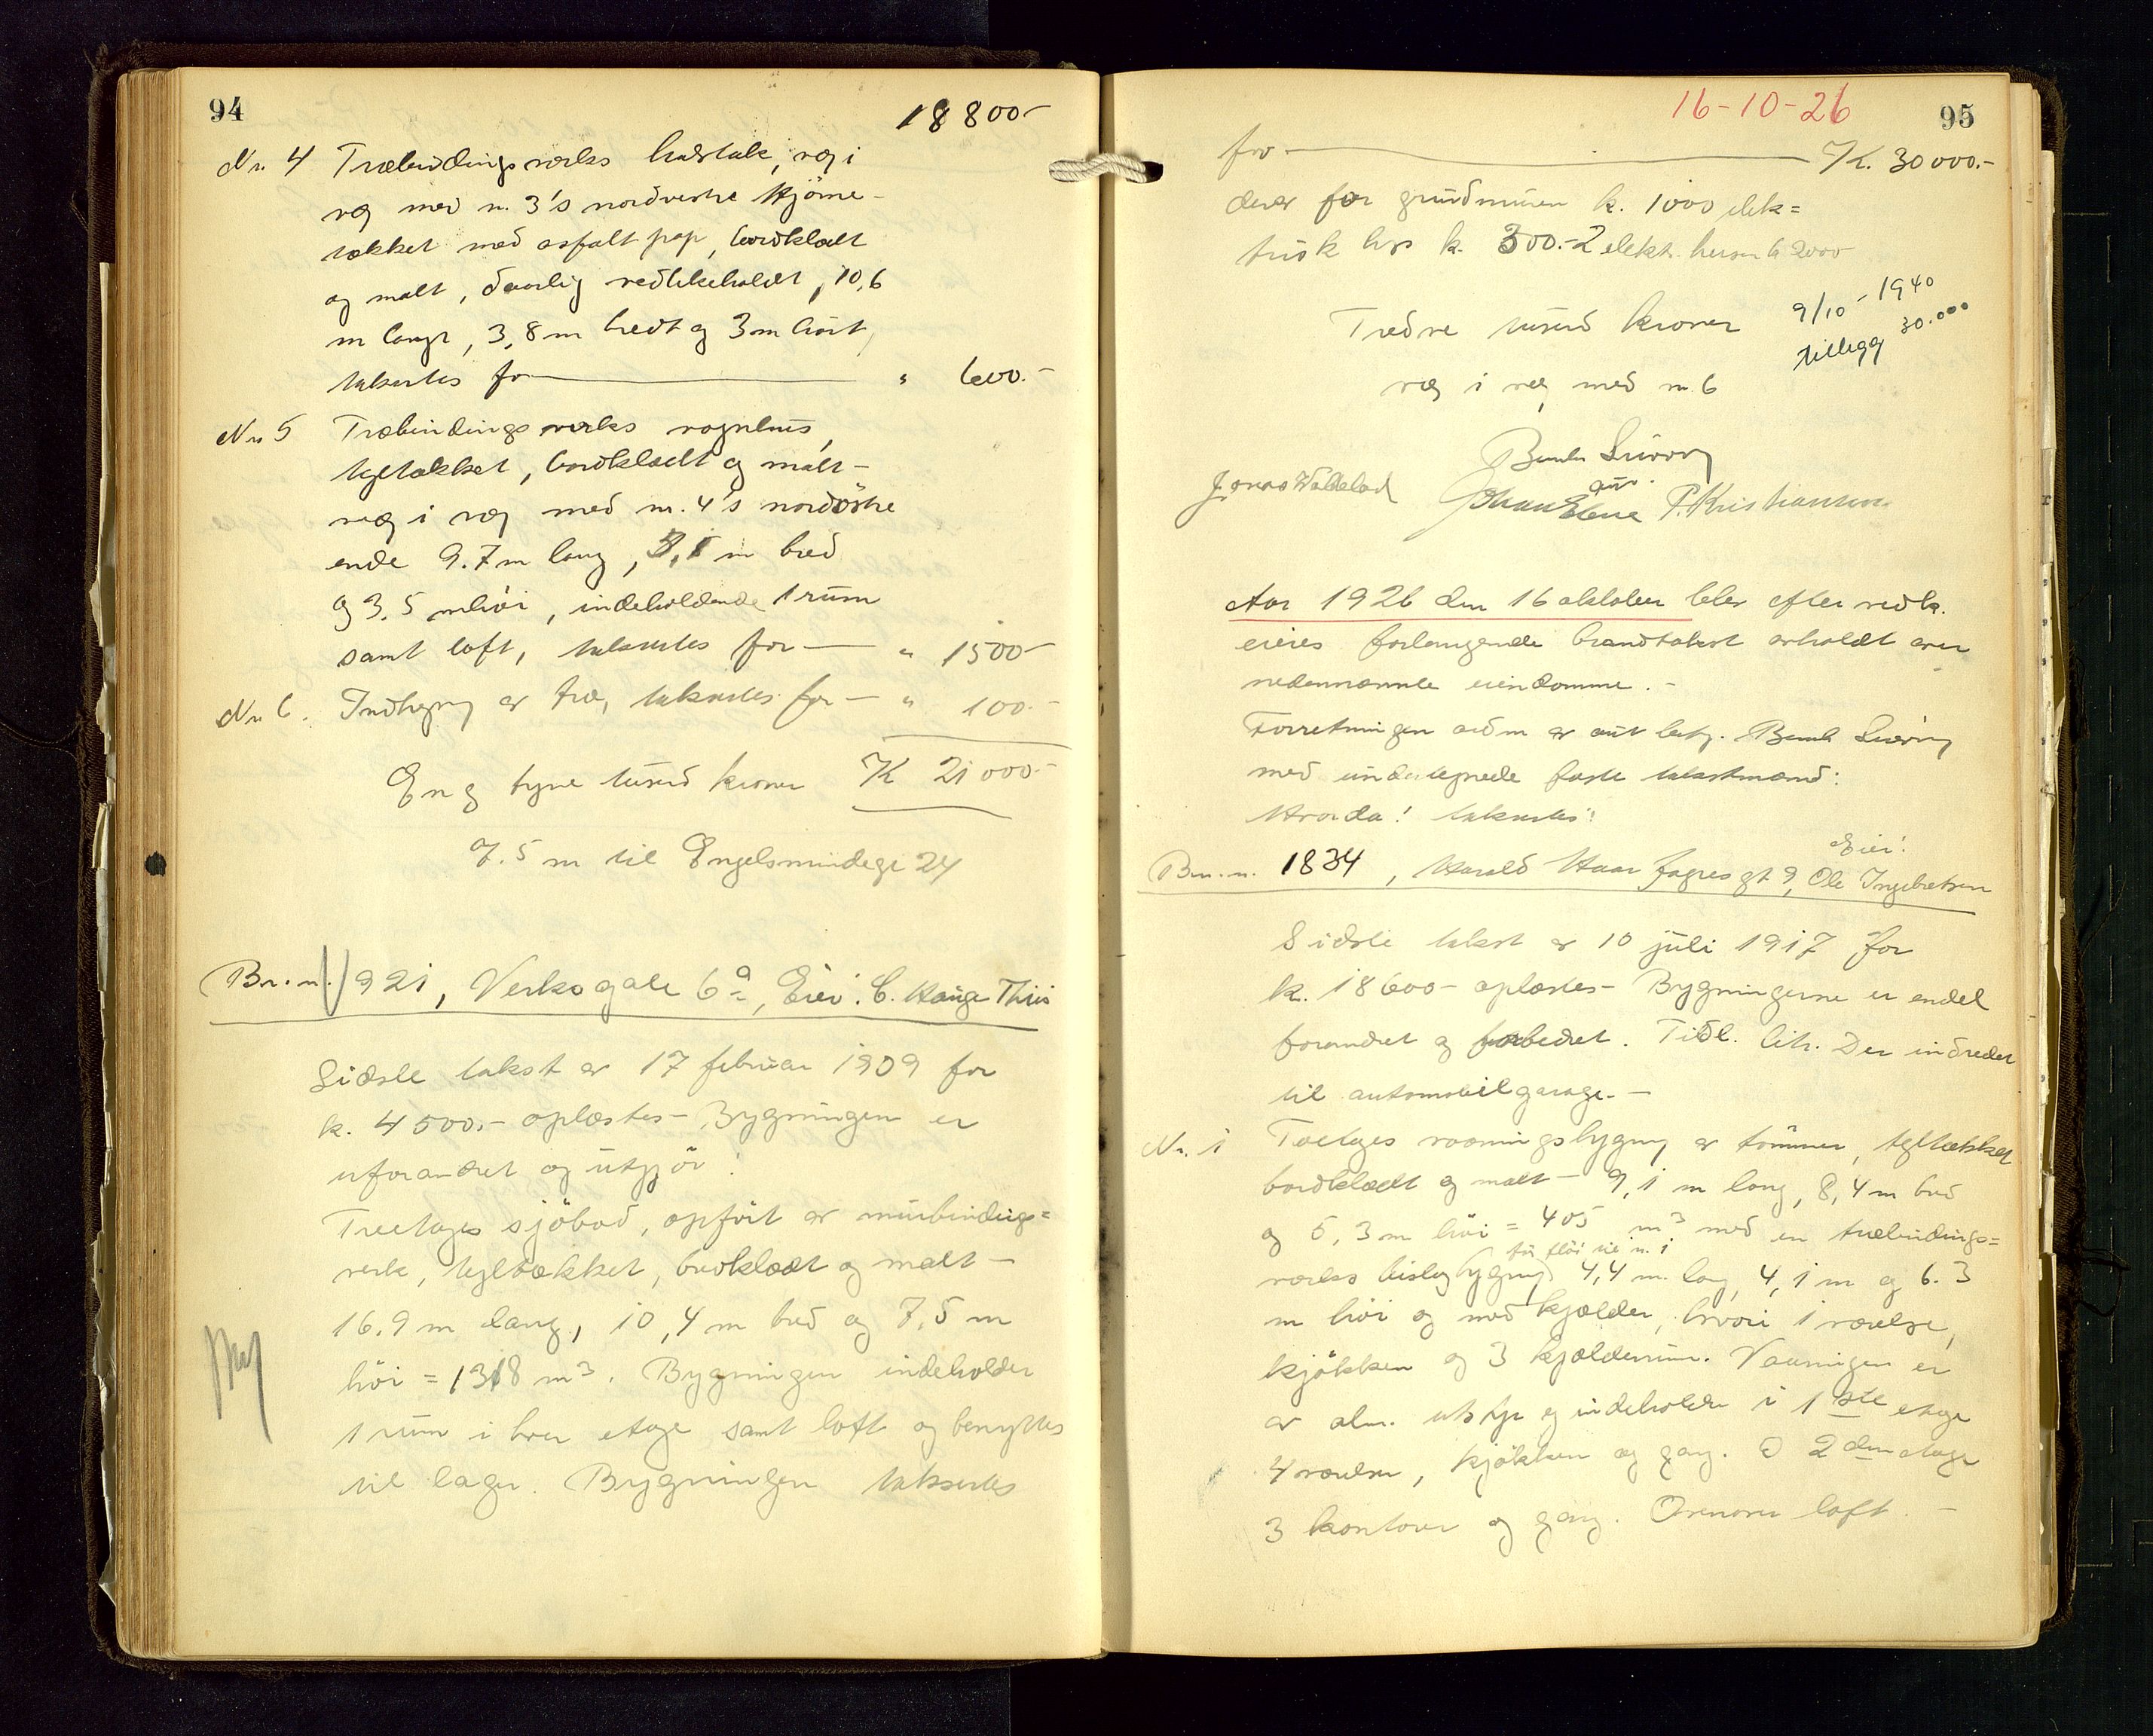 94
18800-
Nr. 4 Træbindingsverks halvtak, væg i
væg med n. 3's nordvestre hjörne-
tækket med asfalt pap, bordklædt
og malt, daarlig vedlikeholdt, 10,6
m langt, 3,8 m bredt og 3 m höit,
takseres for — " 600.-
Nr 5 Træbindingsverks vognhus,
tegltækket, bordklædt og malt-
væg i væg med nr. 4's nordöstre
ende 9.7 m lang, m bred
og 3,5 m höi, indeholdende 1 rum
samt loft, takseres for — " 1500-
Nr 6. Indhegning av træ, takseres for — " 100.-
En og tyve tusend kroner K 21000.-
7.5 m til Engelsmindegt 24
Br. n. 921, Verksgate 6a, Eier: C. Hauge Thiis
Sidste takst av 17 februar 1909 for
k. 4500.- oplæstes- Bygningen er
uforandret og utgjör:
Treetages sjöbod, opfört av murbindings=
verk, tegltækket, bordklædt og malt -
16.9 m lang, 10,4 m bred og 7,5 m
höi = 1318 m3. Bygningen indeholder
1 rum i hver etage samt loft og benyttes
til lager. Bygningen takseres
16-10-26
95
for — K. 30000.-
derav for grundmuren k. 1000 elek=
trisk lys k. 300.- 2 elekt. heiser k 2000-
Tredve tusend kroner
9/10-1940
tillegg 30.000
væg i væg med nr 6
Jonas Wathelad
P. Kristiansen
Aar 1926 den 16 oktober blev efter vedk.
eieres forlangende brandtakst avholdt over
nedennævnte eiendomme.-
Forretningen av aut besty.
med undertegnede faste takstmænd:
Hvorda! takseres:
Eier:
Br. n. 1834, Harald Haarfagres gt 9, Ole Ingebretsen
Sidste takst av 10 juli 1917 for
k. 18600- oplæstes- Bygningerne er endel
forandret og forbedret. Tidl. litr. D er indredet
til automobilgarage.-
Nr. 1 Toetages vaaningsbygning av tömmer, tegltækket
bordklædt og malt - 9,1 m lang, 8,4 m bred
og 5,3 m höi = 405 m3 med en træbindings=
för flöi til n. 1
verks bislagbygning 4,4 m. lang 4,1 m og 6.3
m höi og med kjælder, hvori 1 værelse,
kjökken og 3 kjælderrum. Vaaningen er
av alm. utstyr og indeholder i 1ste etage
4 værelser, kjökken og gang. I 2den etage
3 kontorer og gang. Ovenover loft.-